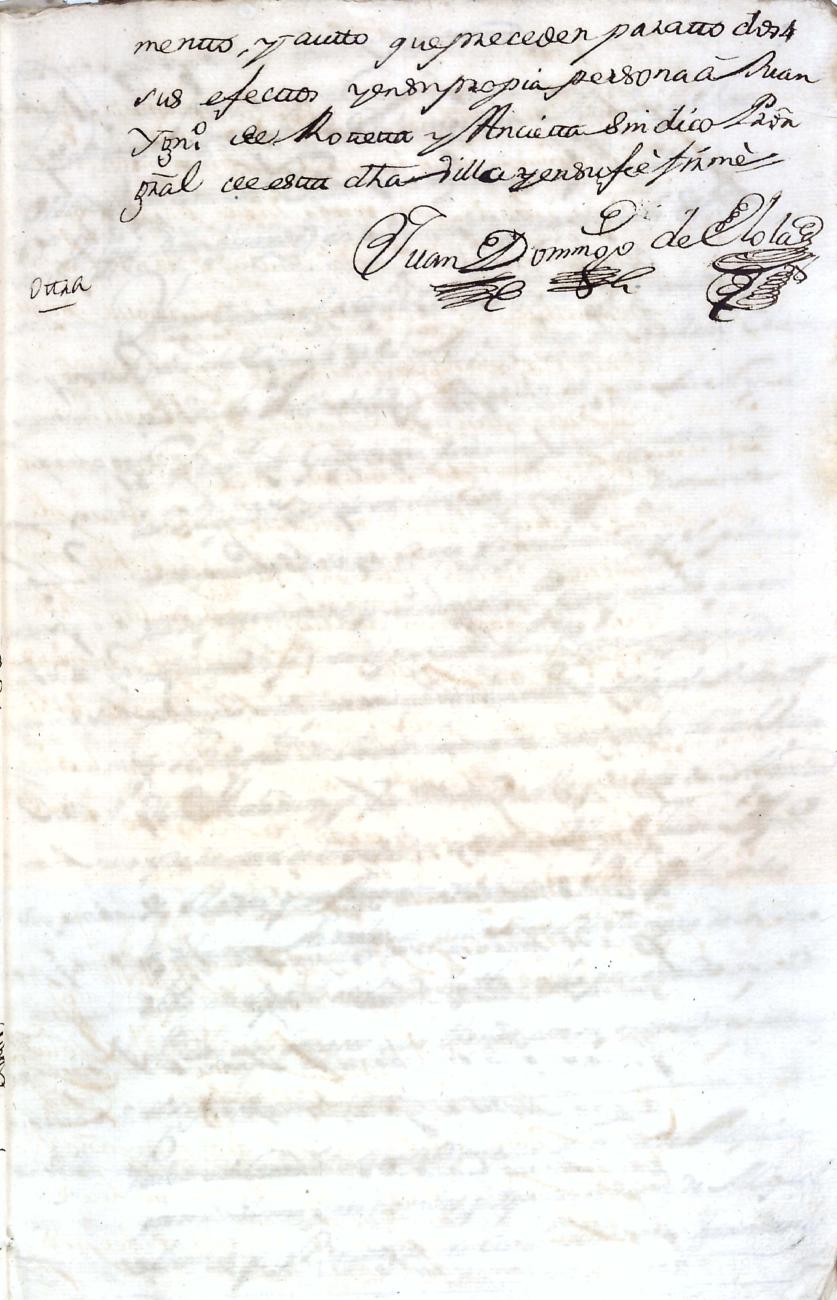 mentto, y autto que preceden para tto dos
sus efecttos y en su propia persona â Juan
Ygnº de Rovetta y Ancietta Sindico Prôn
grâl de esta dha Villa y en su feè firmè
Juan Domingo de Elola
Ottra